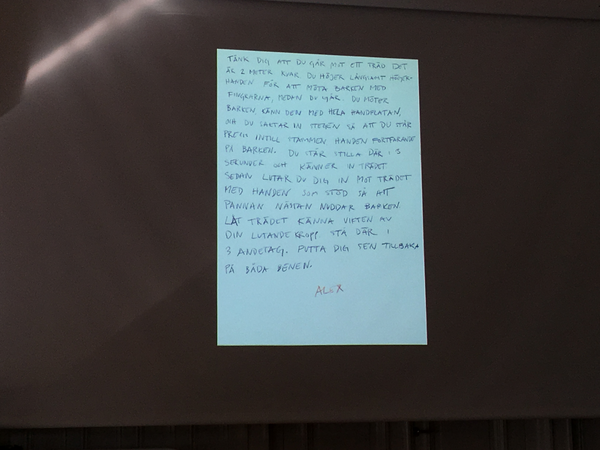 TÄNK DIG ATT DU GÅR MOT ETT TRÄD DET
ÄR 2 METER KVAR DU HÖJER LÅNGSAMT HÖGER-
HANDEN FÖR ATT MÖTA BARKEN MED
FINGRARNA, MEDAN DU GÅR. DU MÖTER
BARKEN KÄNN DEN MED HELA HANDFLATAN,
OCH DU SAKTAR IN STEGEN SÅ ATT DU STÅR
PRECIS INTILL STAMMEN HANDEN FORTFARANDE
PÅ BARKEN. DU STÅR STILLA DÄR I 5
SEKUNDER OCH KÄNNER IN TRÄDET
SEDAN LUTAR DU DIG IN MOT TRÄDET
MED HANDEN SOM STÖD SÅ ATT
PANNAN NÄSTAN NUDDAR BARKEN.
LÅT TRÄDET KÄNNA VIKTEN AV
DIN LUTANDE KROPP STÅ DÄR I
3 ANDETAG. PUTTA DIG SEN TILLBAKA
PÅ BÅDA BENEN.
ALEX